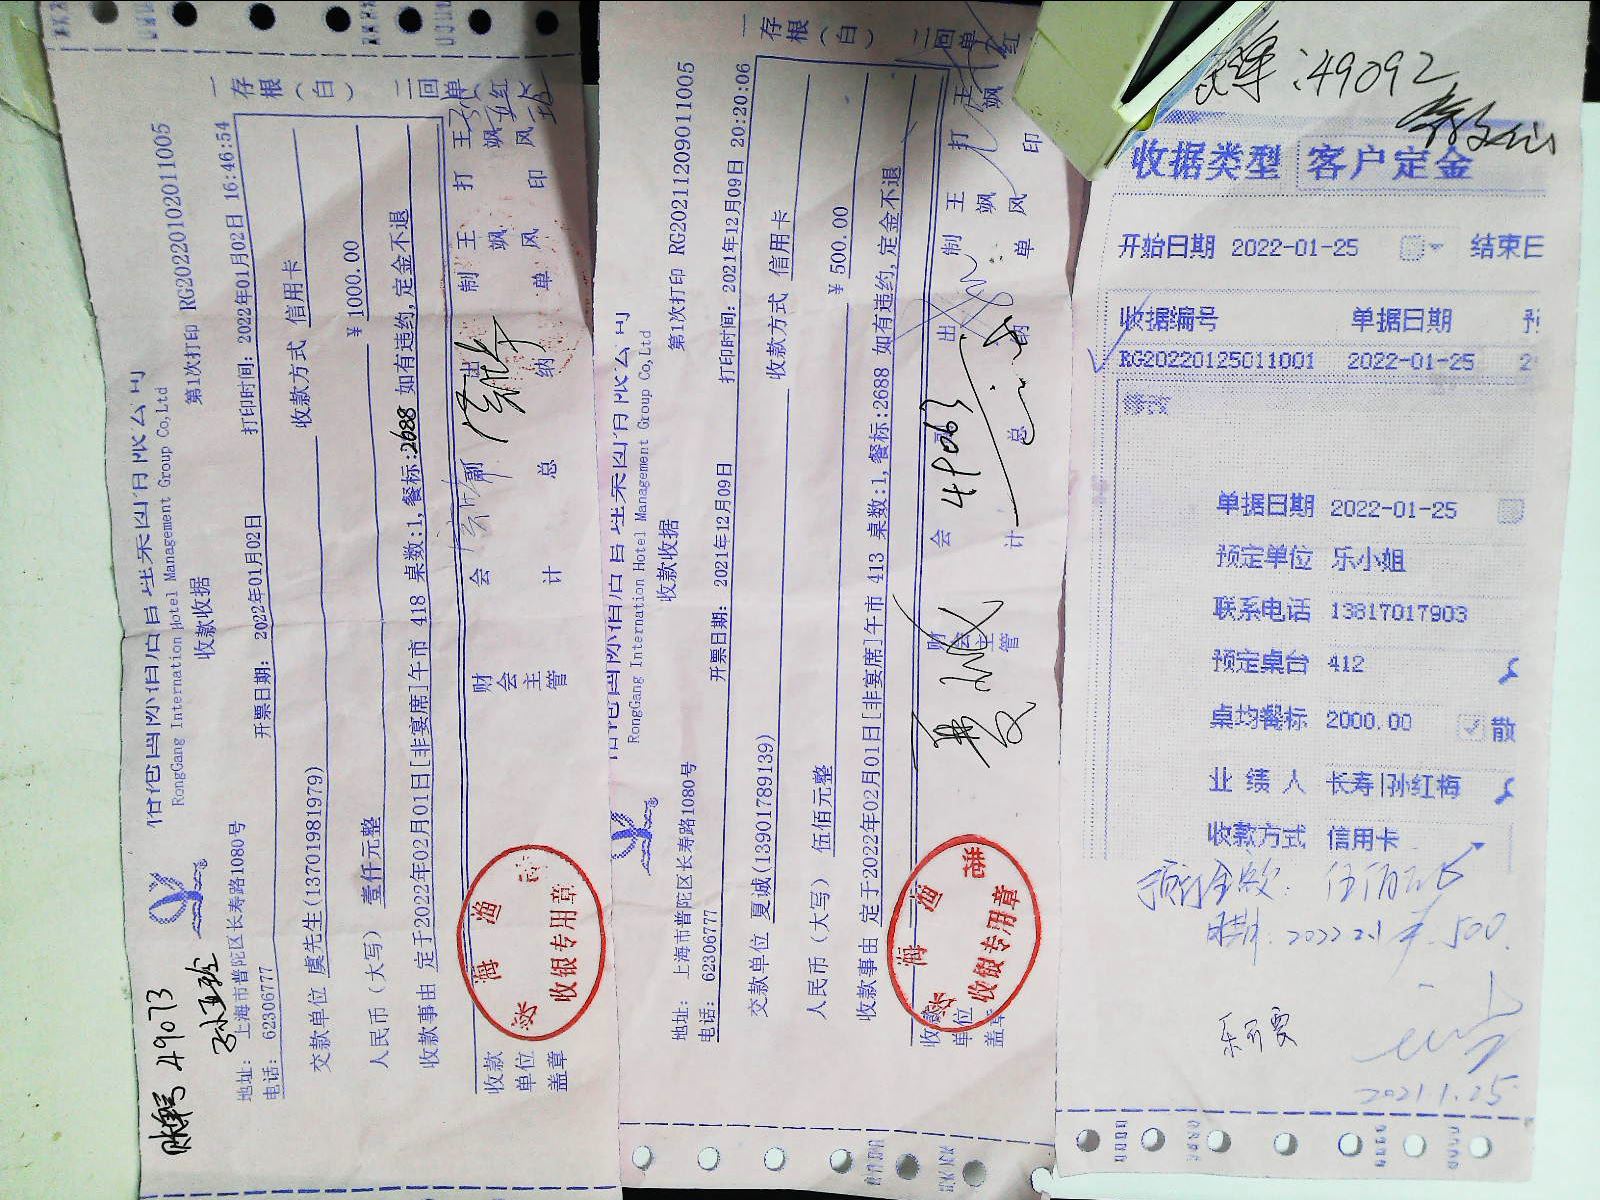 账单号 49073
孙亚玲
RongGang International Hotel Management Group Co,Ltd
收款收据
第1次打印 RG20220102011005
地址: 上海市普陀区长寿路1080号
电话: 62306777
开票日期: 2022年01月02日
打印时间: 2022年01月02日 16:46:54
交款单位 虞先生(13701981979)
收款方式 信用卡
人民币(大写) 壹仟元整
¥ 1000.00
收款事由 定于2022年02月01日[非宴席]午市 418 桌数:1,餐标:2688 如有违约,定金不退
收款单位盖章
财会主管
会计
副总
出纳
制单 王飒风
打印 王飒风
一存根(白)
二回单(红)
收银专用章
RongGang International Hotel Management Group Co,Ltd
收款收据
第1次打印 RG20211209011005
地址: 上海市普陀区长寿路1080号
电话: 62306777
开票日期: 2021年12月09日
打印时间: 2021年12月09日 20:20:06
交款单位 夏诚(13901789139)
收款方式 信用卡
人民币(大写) 伍佰元整
¥ 500.00
收款事由 定于2022年02月01日[非宴席]午市 413 桌数:1,餐标:2688 如有违约,定金不退
收款单位盖章
财会主管
夏诚
会计
49063
总
出纳
制单 王飒风
打印 王飒风
一存根(白)
二回单(红)
收银专用章
:49092
收据类型 客户定金
开始日期 2022-01-25 结束日
收据编号 单据日期
RG20220125011001 2022-01-25
修改
单据日期 2022-01-25
预定单位 乐小姐
联系电话 13817017903
预定桌台 412
桌均餐标 2000.00 散
业绩人 长寿|孙红梅
收款方式 信用卡
预付金额: 伍佰元
日期: 2022.2.1 ¥500.
2021.1.25